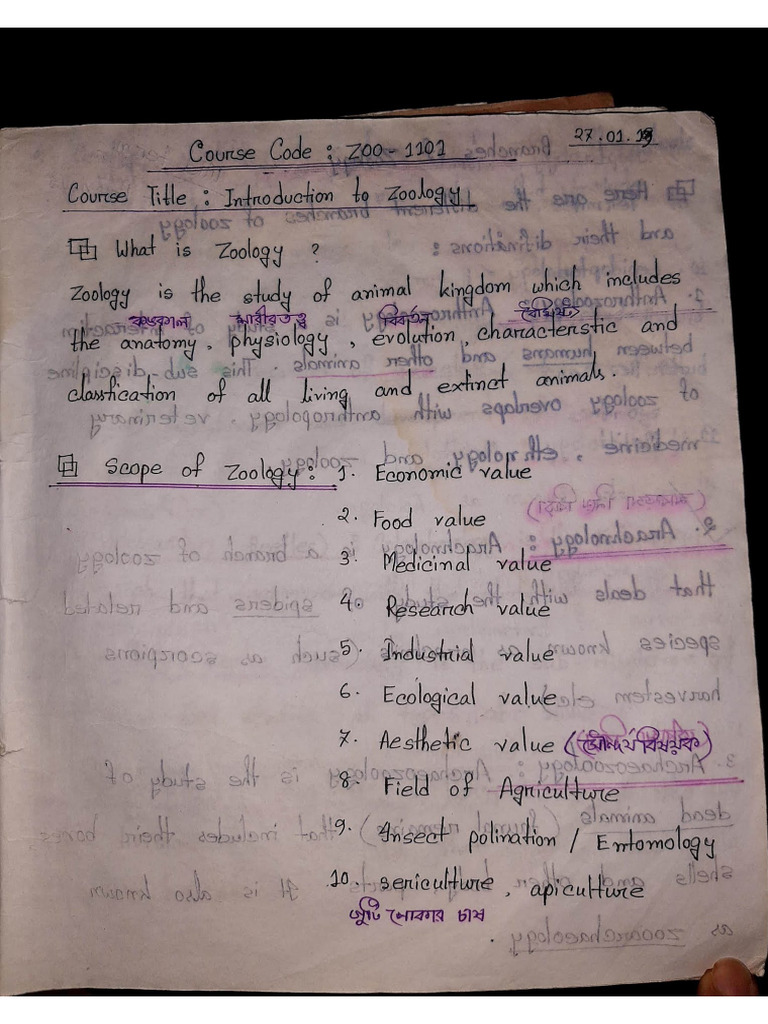 27.01.19
Course Code : ZOO - 1101
Course Title : Introduction to Zoology
What is Zoology ?
Zoology is the study of animal kingdom which includes
কঙ্কাল শারীরতত্ত্ব বিবর্তন বৈশিষ্ট্য
the anatomy, physiology, evolution, characteristic and
classfication of all living and extinct animals.
Scope of Zoology : 1. Economic value
2. Food value
3. Medicinal value
4. Research value
5. Industrial value
6. Ecological value
7. Aesthetic value (সৌন্দর্য বিষয়ক)
8. Field of Agriculture
9. Insect polination / Entomology
10. sericulture, apiculture
গুটি পোকার চাষ